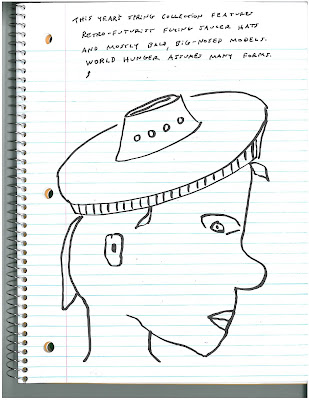 THIS YEAR'S SPRING COLLECTION FEATURES
RETRO-FUTURIST FLYING SAUCER HATS
AND MOSTLY BALD, BIG-NOSED MODELS.
WORLD HUNGER ASSUMES MANY FORMS.